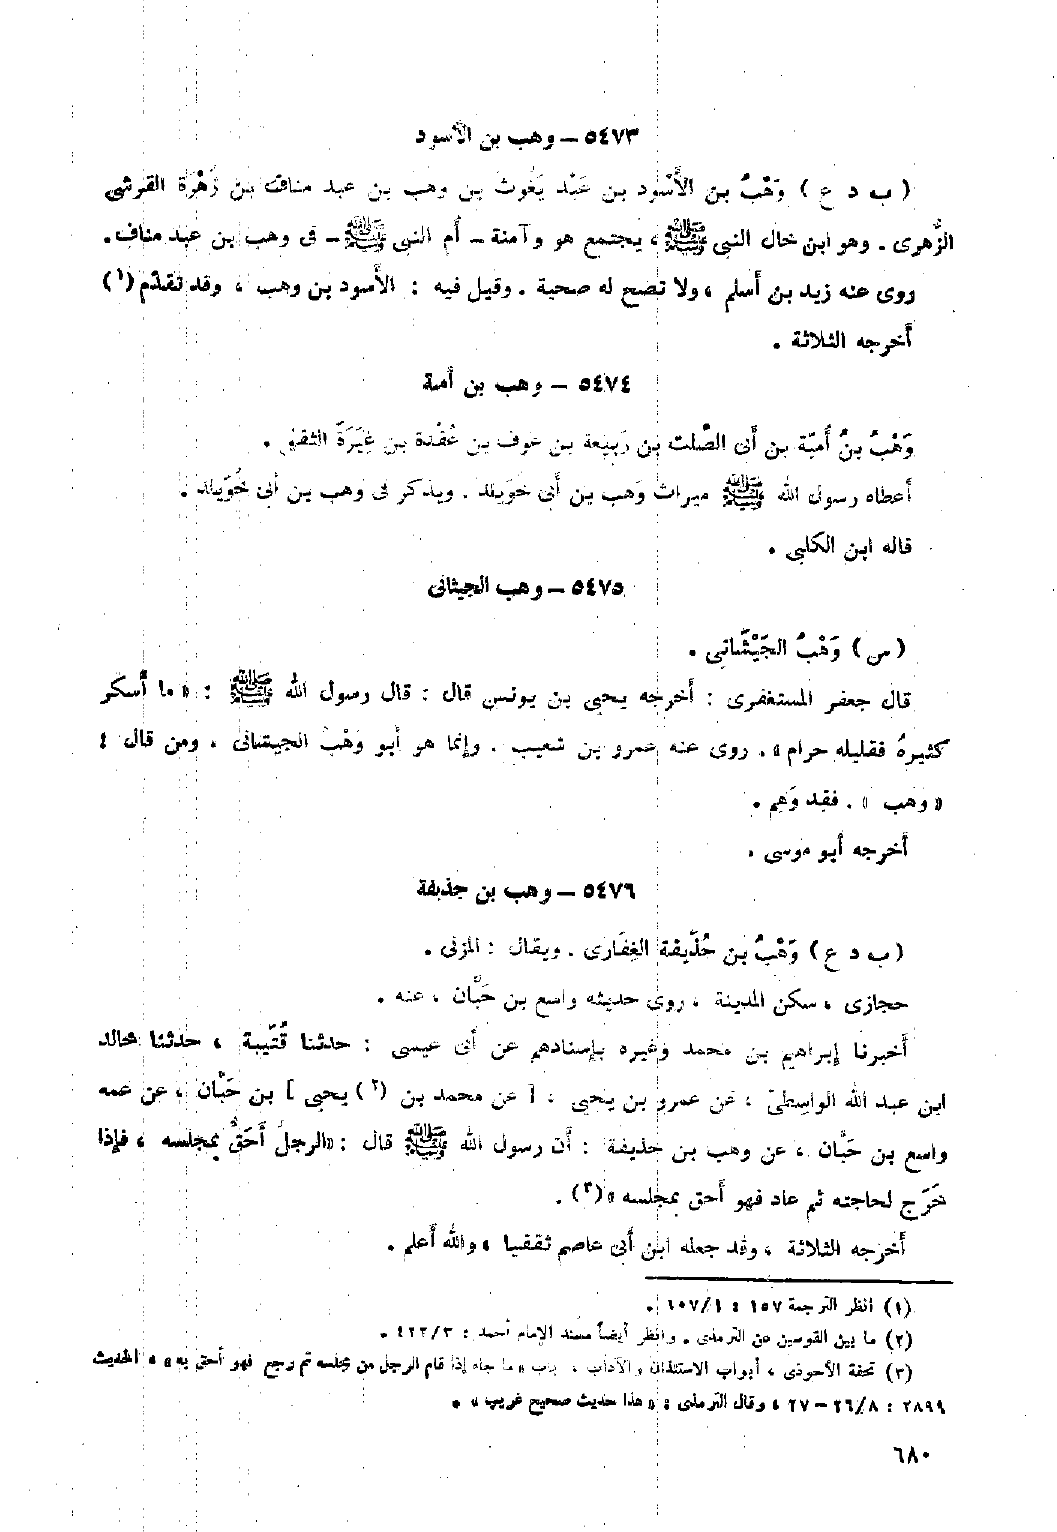 ٥٤٧٣ – وهب بن الأسود
( ب د ع ) وَهْبُ بن الأَسْود بن عَبْد يَغُوث بن وهب بن عبد مناف بن زَهْرَة القرشى
الزُّهرى . وهو ابن خال النبى ﷺ ، يجتمع هو وآمنة – أم النبى ﷺ – فى وهب بن عبد مناف .
روى عنه زيد بن أسلم ، ولا تصح له صحبة . وقيل فيه : الأسود بن وهب ، وقد تقدّم (١)
أخرجه الثلاثة .
٥٤٧٤ – وهب بن أمية
وَهْبُ بنُ أُميّة بن أبى الصَّلت بن ربيعة بن عوف بن عُقْدة بن غِيَرَةَ الثقفى .
أعطاه رسول الله ﷺ ميراث وَهب بن أبى خوَيلد . ويذكر فى وهب بن أبى خُوَيلد .
قاله ابن الكلبى .
٥٤٧٥ – وهب الجيشانى
( س ) وَهْبُ الجَيْشَانى .
قال جعفر المستغفرى : أخرجه يحيى بن يونس قال : قال رسول الله ﷺ : « ما أسكر
كثيرهُ فقليله حرام » . روى عنه عمرو بن شعيب . وإنما هو أبو وَهْب الجيشانى ، ومن قال :
« وهب » . فقد وَهِم .
أخرجه أبو موسى .
٥٤٧٦ – وهب بن حذيفة
( ب د ع ) وَهْبُ بن حُذَيفة الغِفَارى . ويقال : المزنى .
حجازى ، سكن المدينة ، روى حديثه واسع بن حَبَّان ، عنه .
أخبرنا إبراهيم بن محمد وغيره بإسنادهم عن أبى عيسى : حدثنا قُتَيبة ، حدثنا خالد
ابن عبد الله الواسطىّ ، عن عمرو بن يحيى ، [ عن محمد بن (٢) يحيى ] بن حَبَّان ، عن عمه
واسع بن حَبَّان ، عن وهب بن حذيفة : أن رسول الله ﷺ قال : «الرجلُ أَحَقُّ بمجلسه ، فإذا
خَرَج لحاجته ثم عاد فهو أحق بمجلسه » (٣) .
أخرجه الثلاثة ، وقد جعله ابن أبى عاصم ثقفيا ، والله أعلم .
(١) انظر الترجمة ١٥٧ : ١٠٧/١ .
(٢) ما بين القوسين عن الترمذى . وانظر أيضاً مسند الإمام أحمد : ٤٢٢/٣ .
(٣) تحفة الأحوذى ، أبواب الاستئذان والآداب ، باب « ما جاء إذا قام الرجل من مجلسه ثم رجع فهو أحق به » ، الحديث
٢٨٩٩ : ٢٦/٨ – ٢٧ ، وقال الترمذى : « هذا حديث صحيح غريب » .
٦٨٠